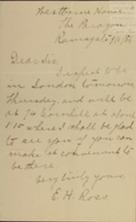 The Paragon
Ramsgate
Dear Sir,
I expect to be
in London tomorrow
Thursday, and will be
at 74 Cornhill at about
1.10 where I shall be glad
to see you if you can
make it convenient to
be there
Very truly yours
E. H. Ross